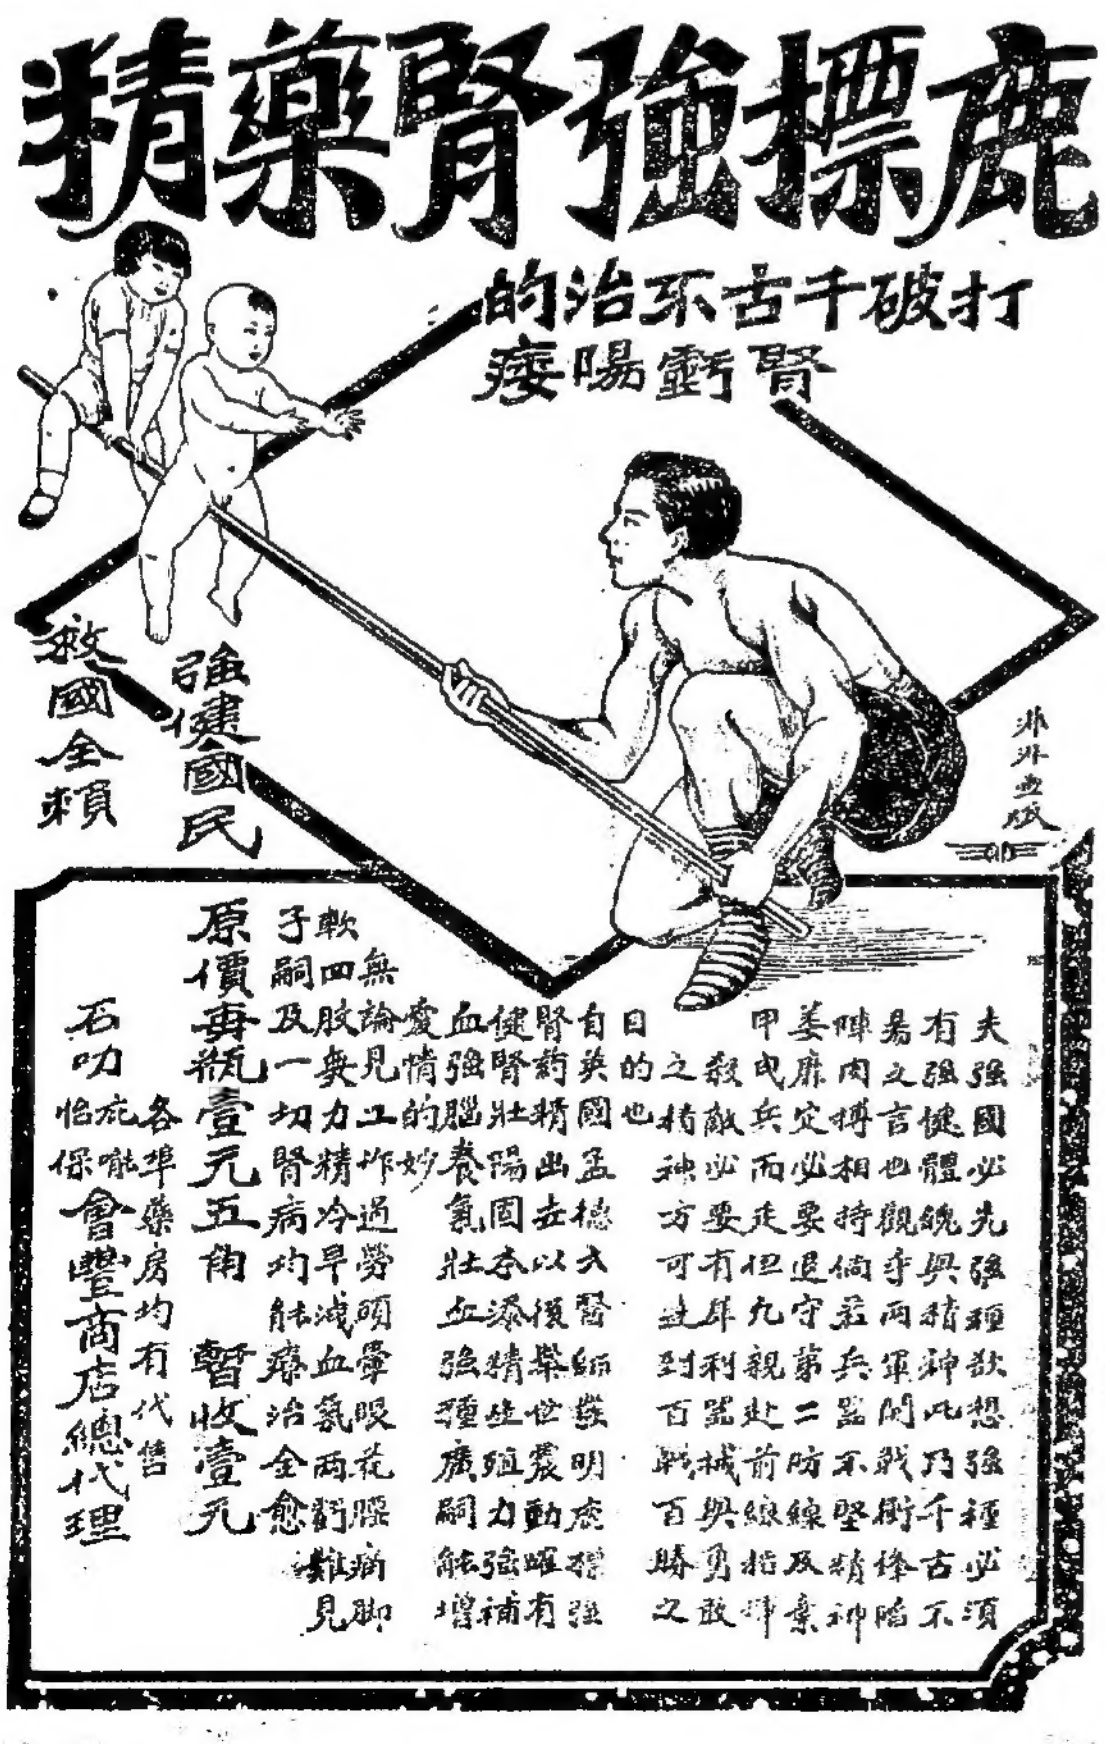 鹿標強腎藥精
打破千古不治的
腎虧陽痿
強健國民
救國全賴
夫強國必先強種欲想強種必須
有強健體魄與精神此乃千古不
易之言也觀乎兩軍開戰衝鋒陷
陣肉搏相持倘若兵器不堅精神
萎靡定必要退守第二防線及棄
甲曳兵而走但凡親赴前線指揮
殺敵必要有犀利器械與勇敢
之精神方可達到百戰百勝之
目的也
自英國孟德大醫師發明鹿標強
腎葯精出去以後舉世震動確有
健腎壯陽固本添精生殖力強補
血強腦養氣壯血強種廣嗣能增
愛情的妙
無論見工作過勞頭暈眼花腰痛脚
軟四肢無力精冷早洩血氣兩虧難見
子嗣及一切腎病均能療治全愈
原價每瓶壹元五角 暫收壹元
各埠藥房均有代售
石叻庇能怡保會豐商店總代理